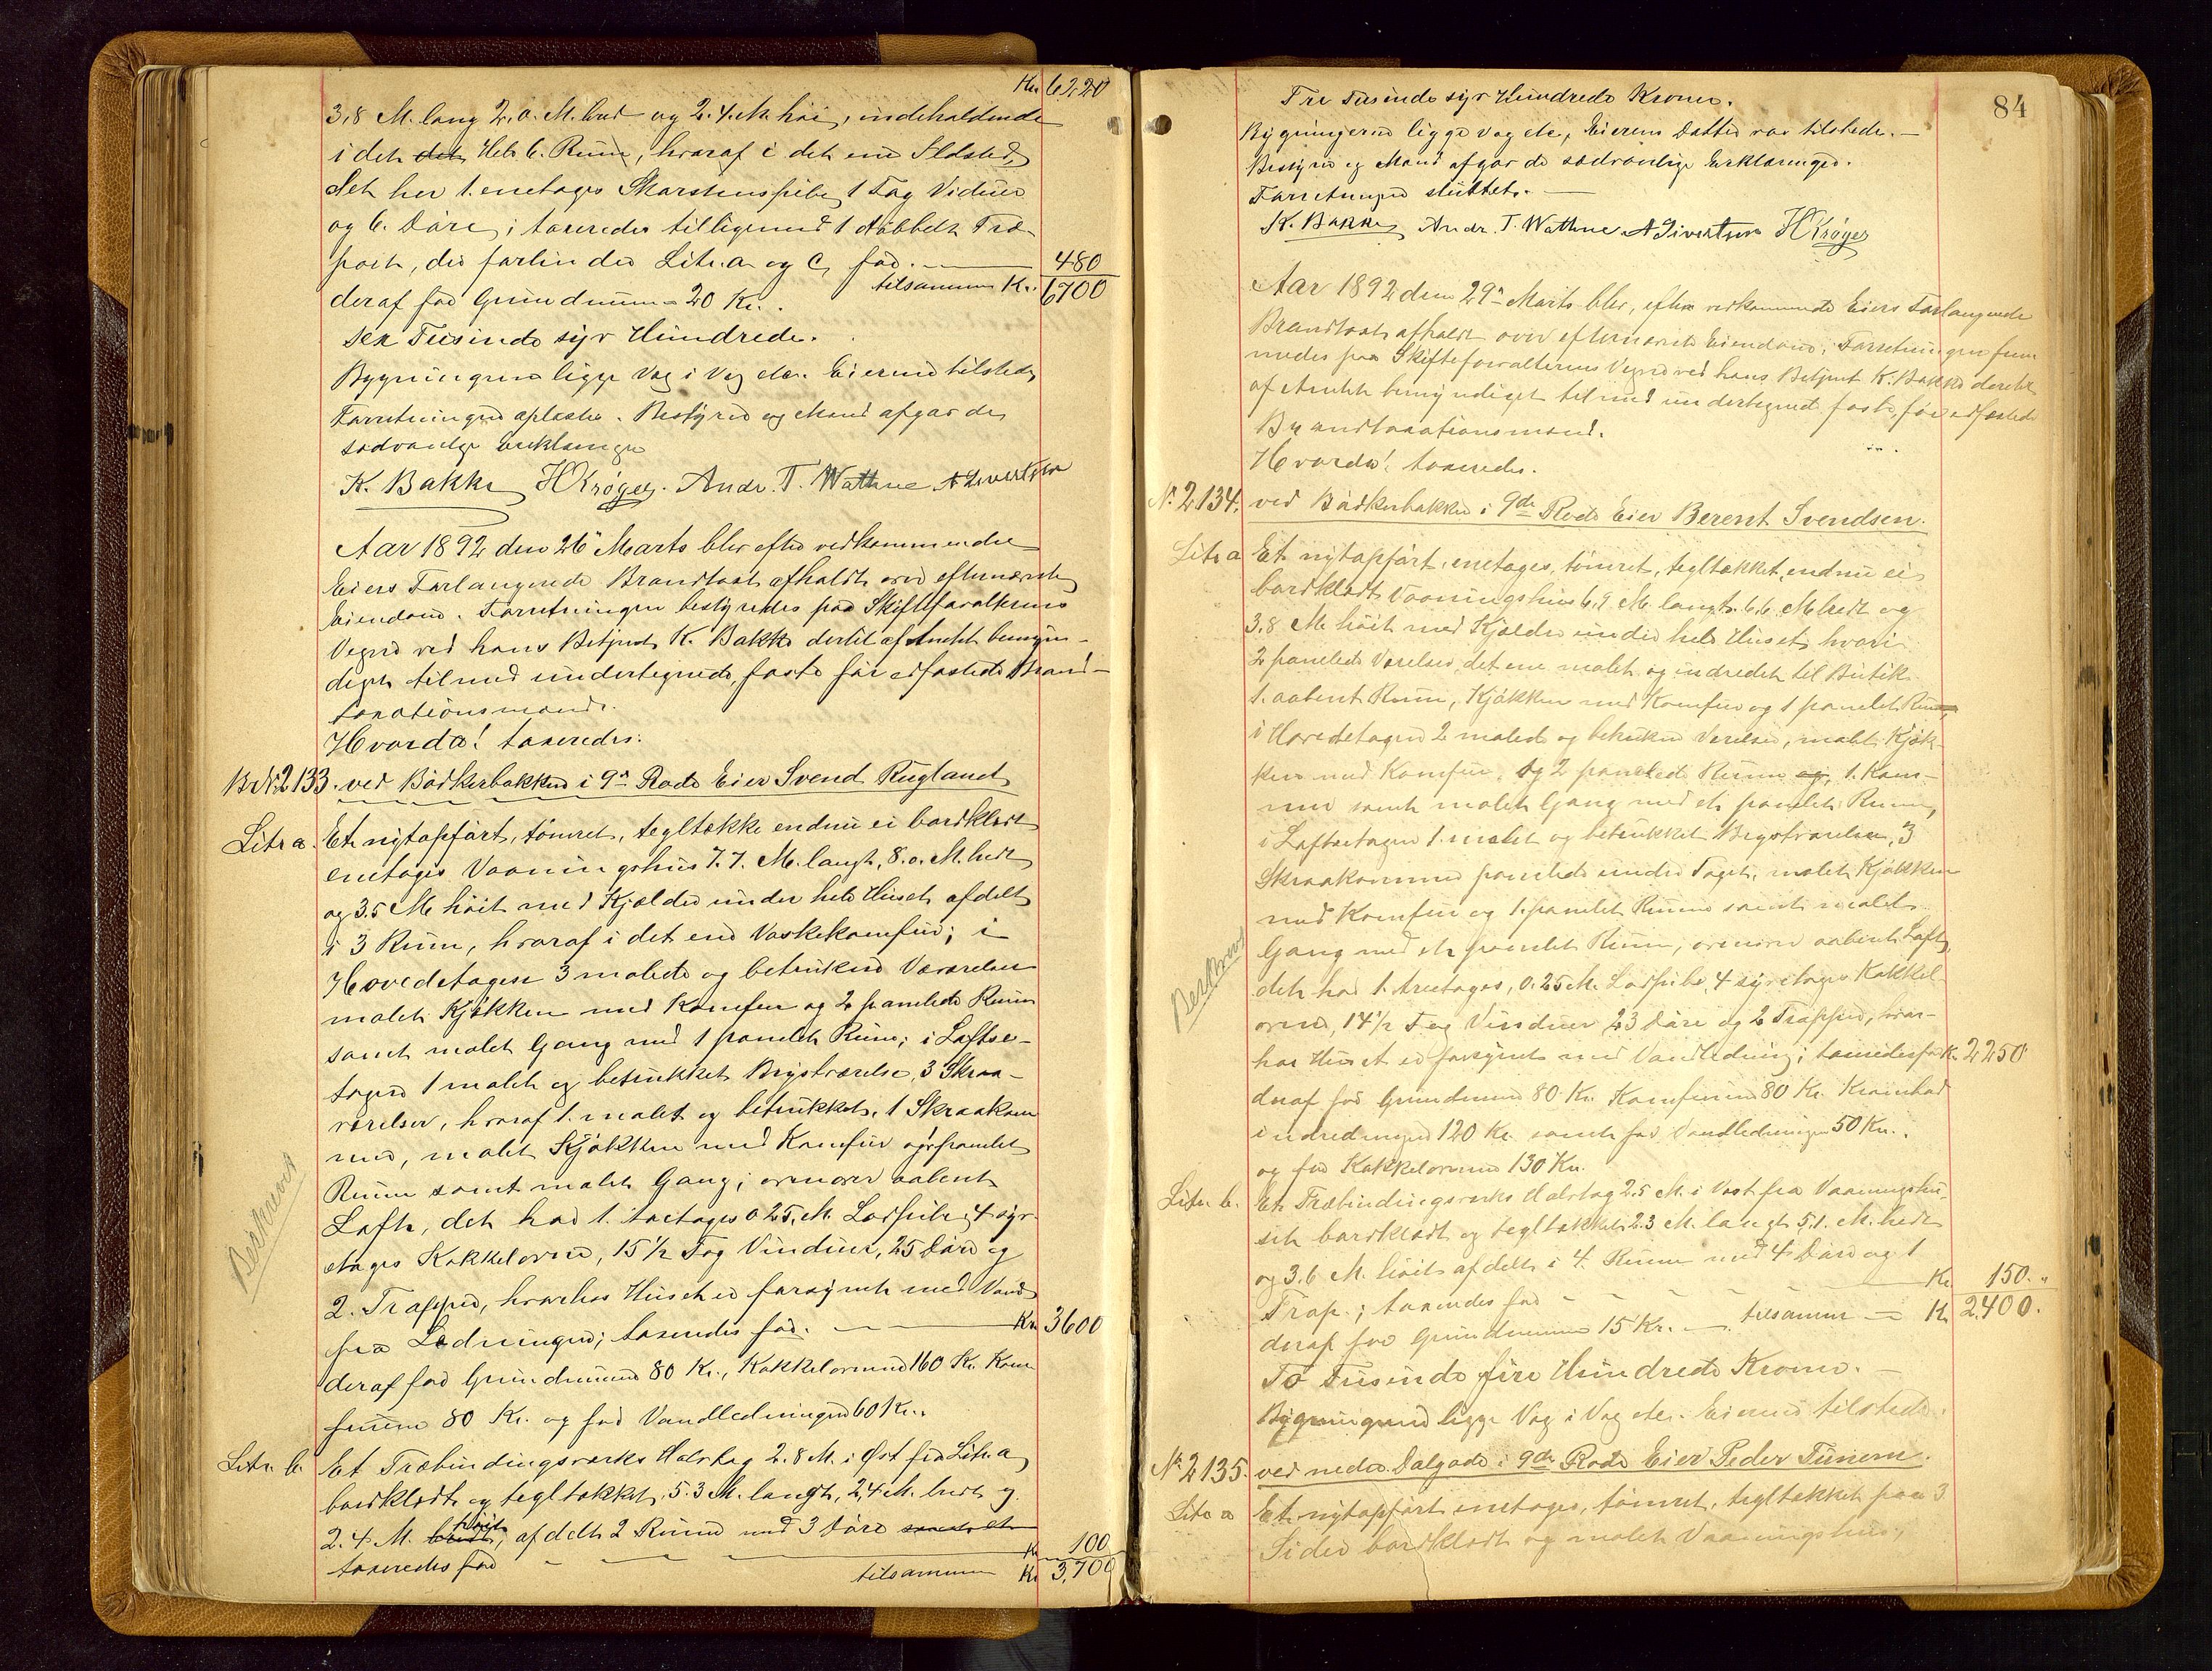 Kr. 6220
3,8 M. lang 2.0. M. bred og 2.4. M. høi, indeholdende
i det det Hele 6. Rum, hvoraf i det ene Ildsted,
det har 1. enetages Skorstenspibe, 1 Fag Vinduer
og 6. Døre; taxeredes tilligemed 1 dobbelt Træ-
port, der forbinder Litr. a og C, for. 480
deraf for Grundmuren 20 Kr. tilsammen Kr. 6700
sex Tusinde syv Hundrede.
Bygningerne ligge Væg i Væg etc. Eieren tilstede,
Forretningen oplæstes. Bestyrer og Mænd afgav de
sædvanlige Erklæringer
K. Bakke HKrøger. Andr. T. Wathne A Sivertsen
Aar 1892 den 26 Marts blev efter vedkommende
Eiers Forlangende Brandtaxt afholdt over efternævnte
Eiendom. Forretningen bestyredes paa Skifteforvalterens
Vegne ved hans Betjent K. Bakke dertil af Amtet bemyn-
diget tilmed undertegnede, faste før edfæstede Brand-
taxationsmænd.
Hvorda! taxeredes:
Br. N. 2133. ved Bødkerbakken i 9de Rode Eier Svend Rugland
Litr a. Et nytopført, tømret, tegltække endnu ei bordklædt
enetages Vaaningshus 7.7. M. langt, 8.0. M. bredt
og 3.5 M. høit med Kjælder under hele Huset afdelt
i 3 Rum, hvoraf i det ene Vaskekomfur; i
Hovedetagen 3 malede og betrukne Værelser
malet Kjøkken med Komfur og 2 panelede Rum
samt malet Gang med 1 panelet Rum; i Loftse-
tagen 1 malet og betrukket Brystværelse, 3 Skraa-
værelser, hvoraf 1. malet og betrukket, 1 Skraakam
mer, malet Kjøkken med Komfur og 1 panelet
Rum samt malet Gang; ovenover aabent
Loft, det har 1. toetages 0 25. M. Lodpibe, 4 syv
etages Kakkelovne, 15 1/2 Fag Vinduer, 25 Døre og
2. Trapper, hvorhos Huset er forsynet med Vand
fra Ledningen; taxeredes for. Kr 3600
deraf for Grundmuren 80 Kr., Kakkelovnene 160 Kr. Kom
furene 80 Kr. og for Vandledningen 60 Kr.
Beskrives
Litr. b. Et Træbindingsværks Halvtag 2.8 M. i Øst fra Litr. a
bordklædt og tegltækket, 5.3 M. langt, 2,4 M. bredt og
2.4. M. bredt høit, afdelt 2 Rum med 3 Døre samt et
taxeredes for Kr 100
tilsammen Kr 3,700
84
Tre Tusinde syv Hundrede Kroner.
Bygningerne ligge Væg etc, Eierens Datter var tilstede.
Bestyrer og Mænd afgav de sædvanlige Erklæringer.
Forretningen sluttet.
K. Bakke Andr. T. Wathne A Sivertsen HKrøger
Aar 1892 den 29de Marts blev, efter vedkommende Eiers Forlangende
Brandtaxt afholdt over efternævnte Eiendom; Forretningen frem
medes paa Skifteforvalterens Vegne ved hans Betjent K. Bakke dertil
af Amtet bemyndiget tilmed undertegnede faste, før edfæstede
Brandtaxationsmænd.
Hvorda! taxeredes.
No. 2134. ved Bødkerbakken i 9de Rode Eier Berent Svendsen.
Litr a Et nytopført, enetages, tømret, tegltækket, endnu ei
bordklædt Vaaningshus 6.9 M. langt. 6.6. M bredt og
3.8 M. høit med Kjælder under hele Huset, hvori
2 panelede Værelser, det ene malet og indredet til Butik
1. aabent Rum, Kjøkken med Komfur og 1 panelet Rum,
i Hovedetagen 2 malede og betrukne Værelser, malet Kjøk-
ken med Komfur, og 2 panelede Rum og, 1. Kam-
mer samt malet Gang med et panelet Rum,
i Loftsetagen 1. malet og betrukket Brystværelse, 3
Skraakammer panelede under Taget, malet Kjøkken
med Komfur og 1. panelet Rum samt malet
Gang med et panelet Rum, ovenover aabent Loft,
det har 1. treetages, 0.25 M. Lodpibe, 4 syvetages Kakkel
ovne, 14 1/2 Fag Vinduer 23 Døre og 2 Trapper, hvor-
hos Huset er forsynet med Vandledning; taxeredes for Kr. 2250
deraf for Grundmuren 80 Kr. Komfurene 80 Kr. Krambod
indredningen 120 Kr. samt for Vandledningen 50 Kr.
og for Kakkelovnene 130 Kr.
Beskrives
Litr. b. Et Træbindingsværks Halvtag 2.5 M. i Vest fra Vaaningshu-
set bordklædt og tegltækket 2.3 M. langt 5.1. M. bredt
og 3.6 M. høit afdelt i 4. Rum med 4 Døre og 1
Trap.; taxeredes for Kr. 150.
deraf for Grundmuren 15 Kr. tilsammen Kr 2,400.
To Tusinde fire Hundrede Kroner.
Bygningerne ligge Væg i Væg etc. Eieren tilstede.
No. 2135. ved nedre Dalgade i 9de Rode Eier Peder Tunem.
Litr a Et nytopført enetages, tømret, tegltækket paa 3
Sider bordklædt og malet Vaaningshus,